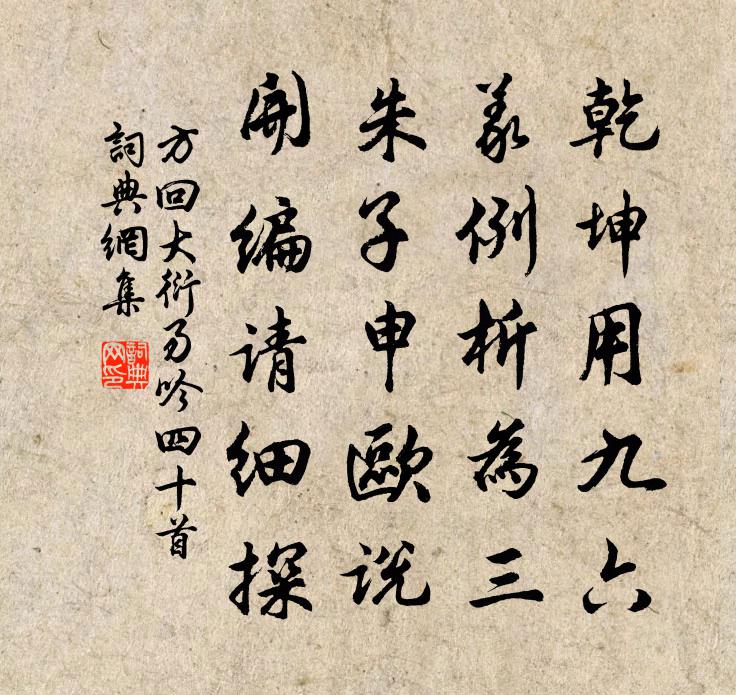 乾坤用九六
義例析為三
朱子申歐説
開編请細探
方回大衍易吟四十首
詞典網集
詞典网印